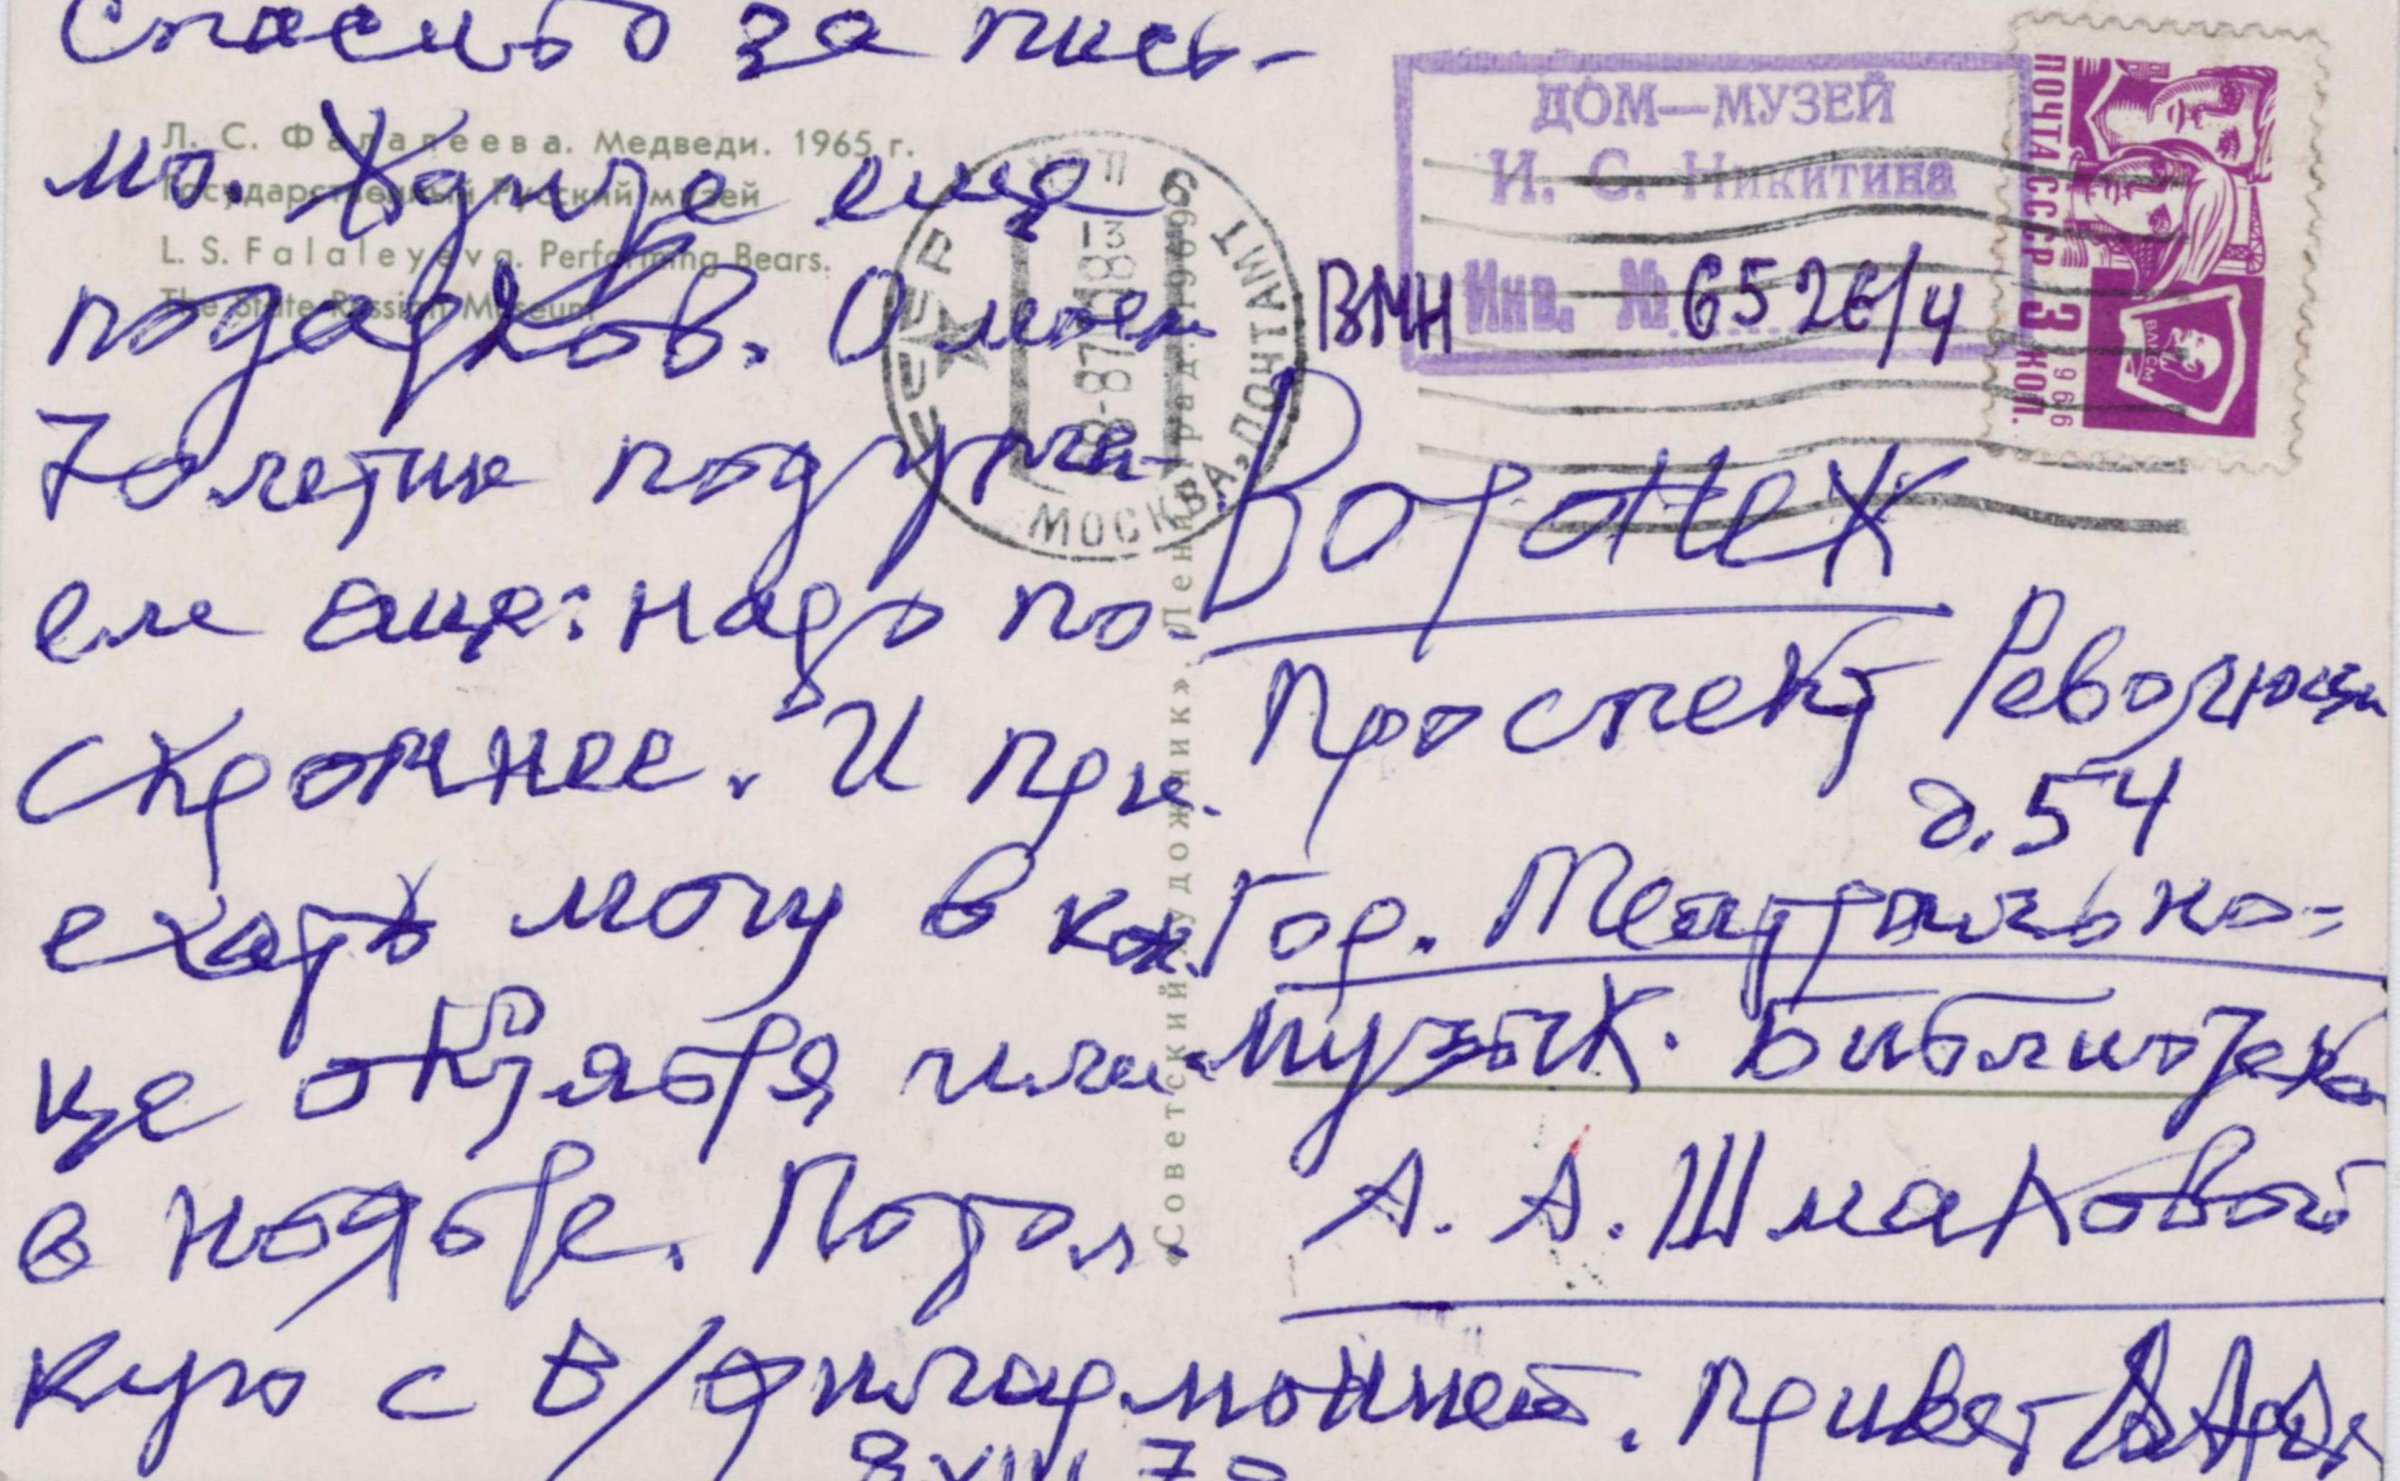 Спасибо за пись-
мо. Ждите еще
подарков. О моем
70 летии подума-
ем еще: надо по-
скромнее. И при-
ехать могу в кон-
це октября или
в ноябре. Потол-
кую с В/филармонией. Привет
8 VIII 70
Л. С. Фалалеева. Медведи. 1965 г.
Государственный Русский музей
L. S. Falaleyeva. Performing Bears.
The State Russian Museum
«Советский художник». Ленинград. 1969
СССР
МОСКВА, ПОЧТАМТ
13
ДОМ—МУЗЕЙ
И. С. Никитина
ВМН Инв. № 6526/4
ПОЧТА СССР 3 КОП.
1966
ВЛКСМ
Воронеж
Проспект Революции
д. 54
Гор. Театрально-
музык. Библиотека
А. А. Шмаковой